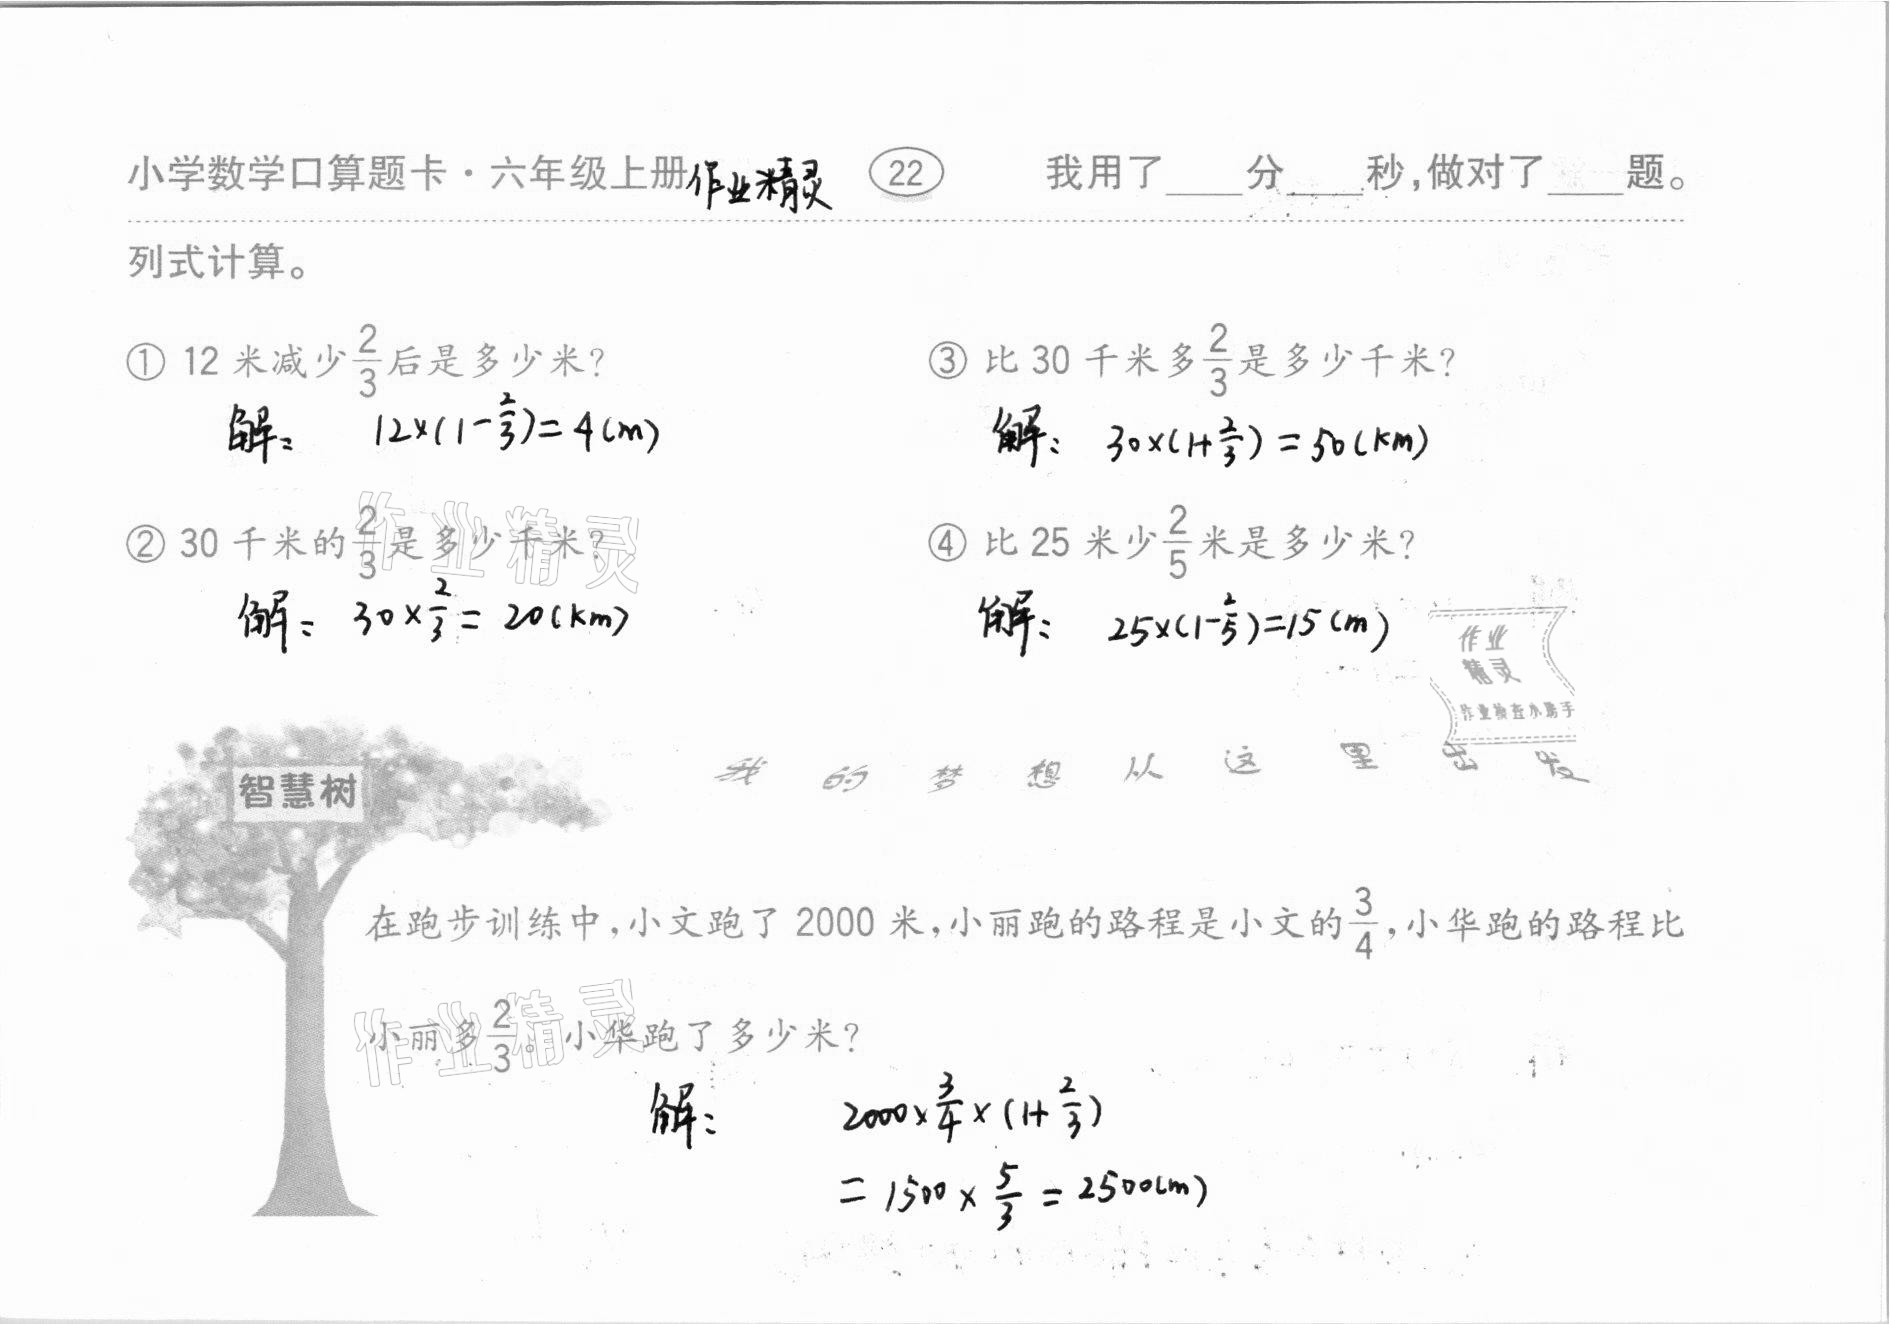 小学数学口算题卡·六年级上册 作业精灵 22 我用了____分____秒,做对了____题。
列式计算。
① 12 米减少2/3后是多少米?
解: 12×(1-2/3)=4(m)
② 30 千米的2/3是多少千米?
解: 30×2/3=20(km)
③ 比 30 千米多2/3是多少千米?
解: 30×(1+2/3)=50(km)
④ 比 25 米少2/5米是多少米?
解: 25×(1-2/5)=15(m)
作业精灵
作业
精灵
作业检查小助手
我的梦想从这里出发
智慧树
在跑步训练中,小文跑了 2000 米,小丽跑的路程是小文的3/4,小华跑的路程比
小丽多2/3。小华跑了多少米?
作业精灵
解: 2000×3/4×(1+2/3)
=1500×5/3=2500(m)